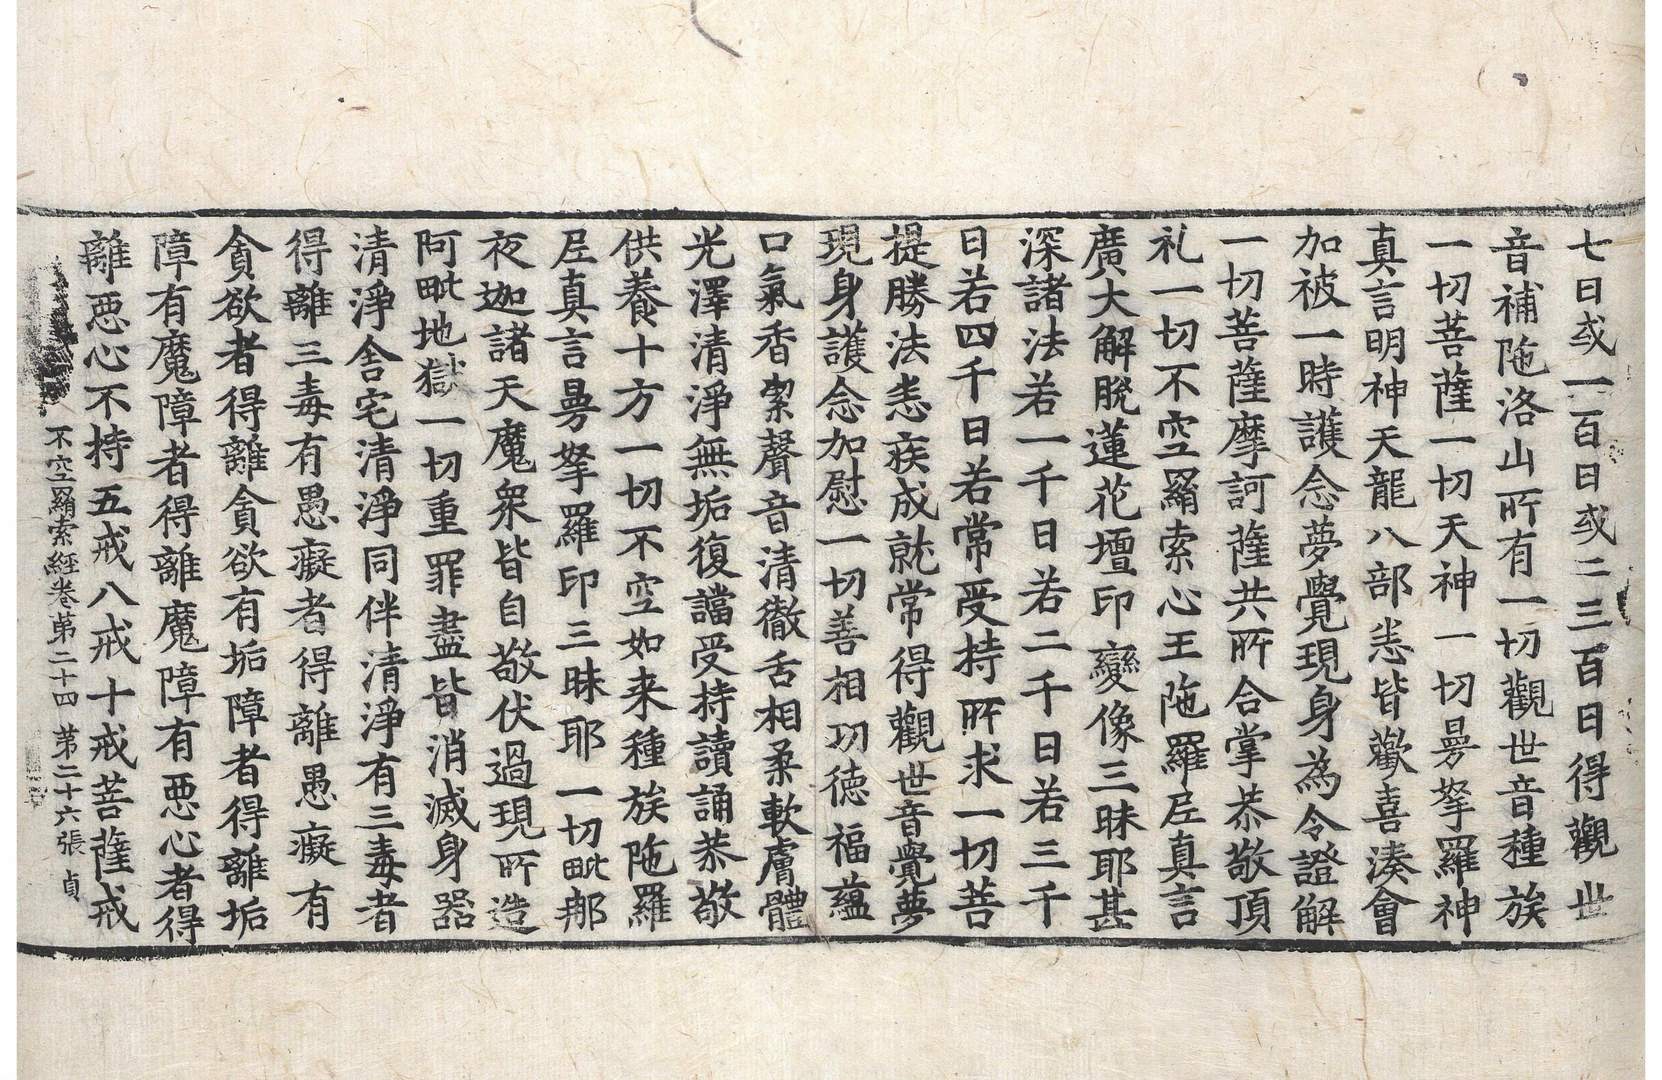 七日或一百日或二三百日得觀世
音補陁洛山所有一切觀世音種族
一切菩薩一切天神一切曼拏羅神
真言明神天龍八部悉皆歡喜湊會
加被一時護念夢覺現身為令證解
一切菩薩摩訶薩共所合掌恭敬頂
礼一切不空羂索心王陁羅尼真言
廣大解脫蓮花壇印變像三昧耶甚
深諸法若一千日若二千日若三千
日若四千日若常受持所求一切菩
提勝法悉疾成就常得觀世音覺夢
現身護念加慰一切善相功德福蘊
口氣香潔聲音清徹舌相柔軟膚體
光澤清淨無垢復讜受持讀誦恭敬
供養十方一切不空如来種族陁羅
尼真言曼拏羅印三昧耶一切毗那
夜迦諸天魔眾皆自敬伏過現所造
阿毗地獄一切重罪盡皆消滅身器
清淨舍宅清淨同伴清淨有三毒者
得離三毒有愚癡者得離愚癡有
貪欲者得離貪欲有垢障者得離垢
障有魔障者得離魔障有惡心者得
離惡心不持五戒八戒十戒菩薩戒
不空羂索經卷第二十四 第二十六張 貞